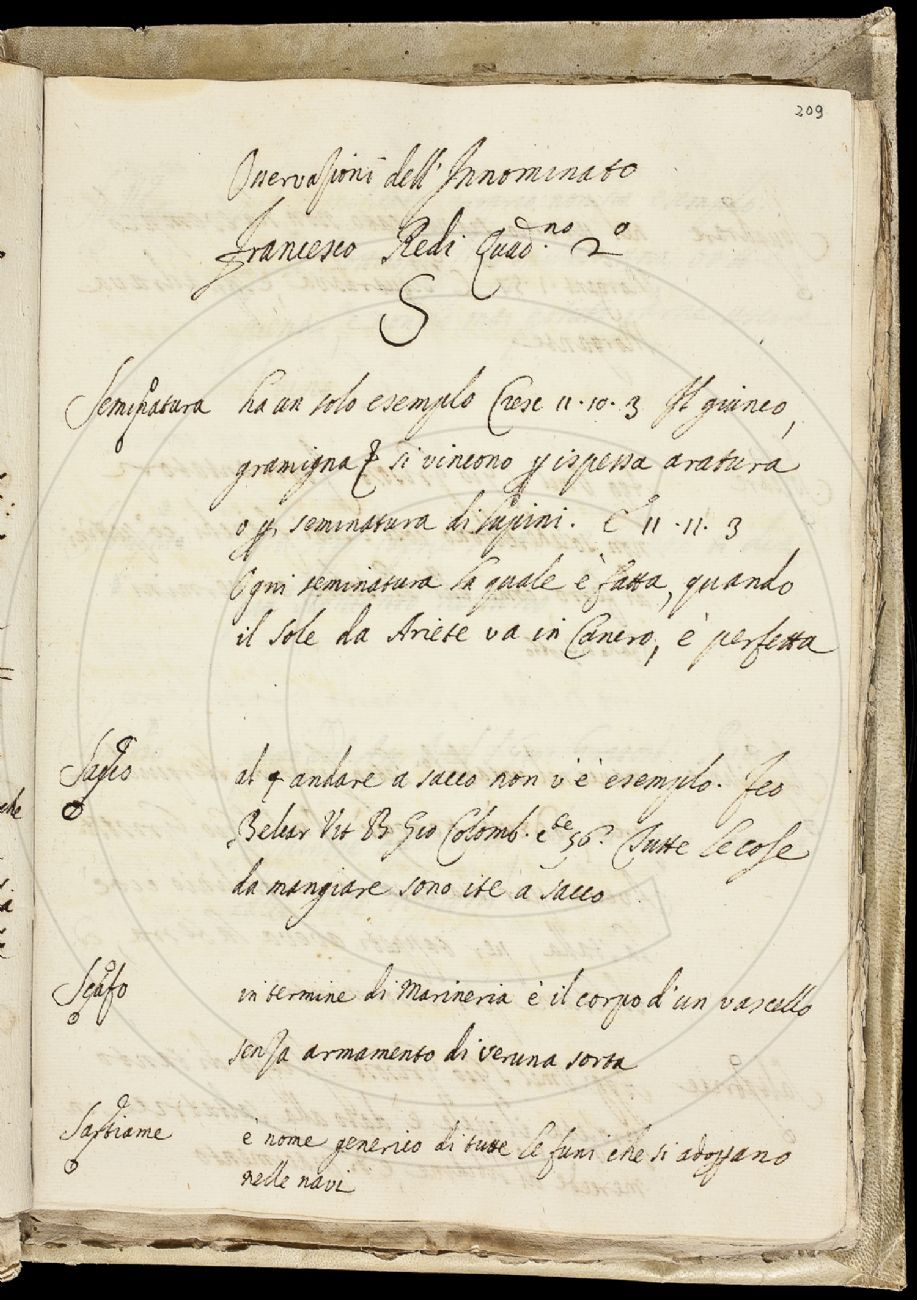 209
Osservazioni dell'Innominato
Francesco Redi Quad.no 2o
S
Seminatura ha un solo esempio Cresc 11.10.3 Il giunco,
gramigna & si vincono p ispessa aratura
o p seminatura di lupini. E 11.11.3
Ogni seminatura la quale è fatta, quando
il sole da Ariete va in Cancro, è perfetta
Sacco al § andare a sacco non v'è esempio. Feo
Belcar Vit B. Gio Colomb. c 56. Tutte le cose
da mangiare sono ite a sacco
Scafo in termine di Marineria è il corpo d'un vascello
senza armamento di veruna sorta
Sartiame è nome generico di tutte le funi che si adoprano
nelle navi
che
a